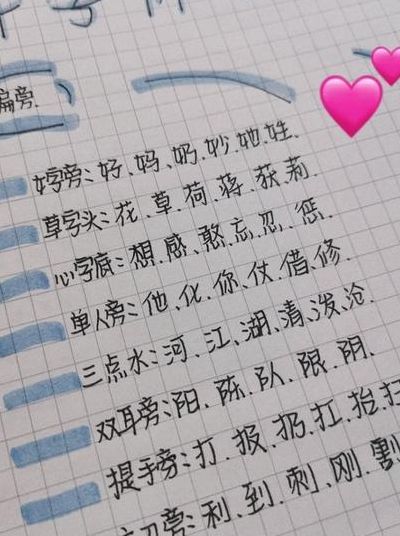 偏旁
好字旁:好、妈、奶、妙、她、姓.
草字头:花、草、荷、蒋、获、莉.
心字底:想、感、憨、忘、忍、惩.
单人旁:他、化、你、仗、借、修.
三点水:河、江、湖、清、泼、沧.
双耳旁:阳、陈、队、限、阴.
提手旁:打、报、扔、扛、抬、扫
刀旁:利、到、刺、刚、割